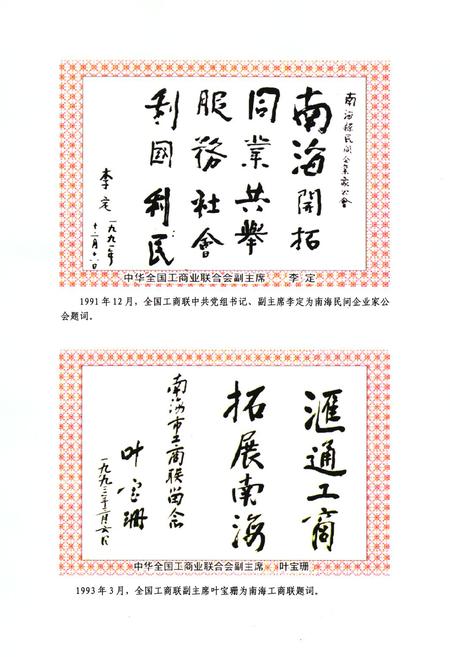 南海縣民间企業家公會
南海開拓
同業共舉
服務社會
利國利民
李定
一九九一年
十二月六日
中华全国工商业联合会副主席 李定
1991年12月，全国工商联中共党组书记、副主席李定为南海民间企业家公
会题词。
滙通工商
拓展南海
南海市工商联留念
叶宝珊
一九九三年三月六日
中华全国工商业联合会副主席 叶宝珊
1993年3月，全国工商联副主席叶宝珊为南海工商联题词。